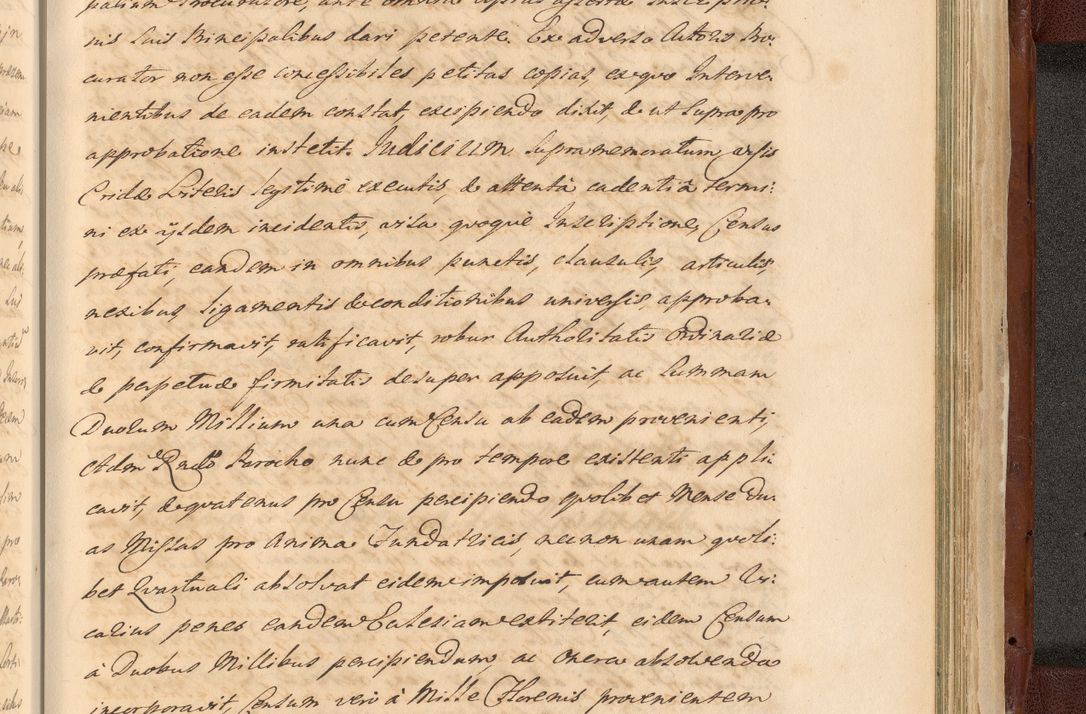 nis suis Principalibus dari petente. Ex adverso Actoris Pro:
curator non esse concessibiles petitas copias, ex quo Interve:
nientibus de eadem constat, excipiendo dixit, & ut supra pro
approbatione institit. Judicium supramemoratum visis
Cridæ Literis legitimè executis, & attentâ cadentiâ termi:
ni ex ijsdem incidentis, visa quoque Inscriptione Census
præfati, eandem in omnibus punctis, clausulis, articulis,
nexibus, ligamentis & conditionibus universis, approba:
vit, confirmavit, ratificavit, robur Authoritatis Ordinariæ
& perpetuæ firmitatis desuper apposuit, ac Summam
Duorum Millium una cum Censu ab eadem provenienti,
Adm Rndo Parocho nunc & pro tempore existenti appli:
cavit, & quatenus pro Censu percipiendo quolibet Mense Du:
as Missas pro Anima Fundatricis, nec non unam quoli:
bet Quartuali absolvat eidem imposuit, cum autem Vi:
carius penes eandem Ecclesiam extiterit, eidem Censum
à Duobus Millibus percipiendum, ac Onera absolvenda
incorporavit, Censum verò à Mille Florenis provenientem